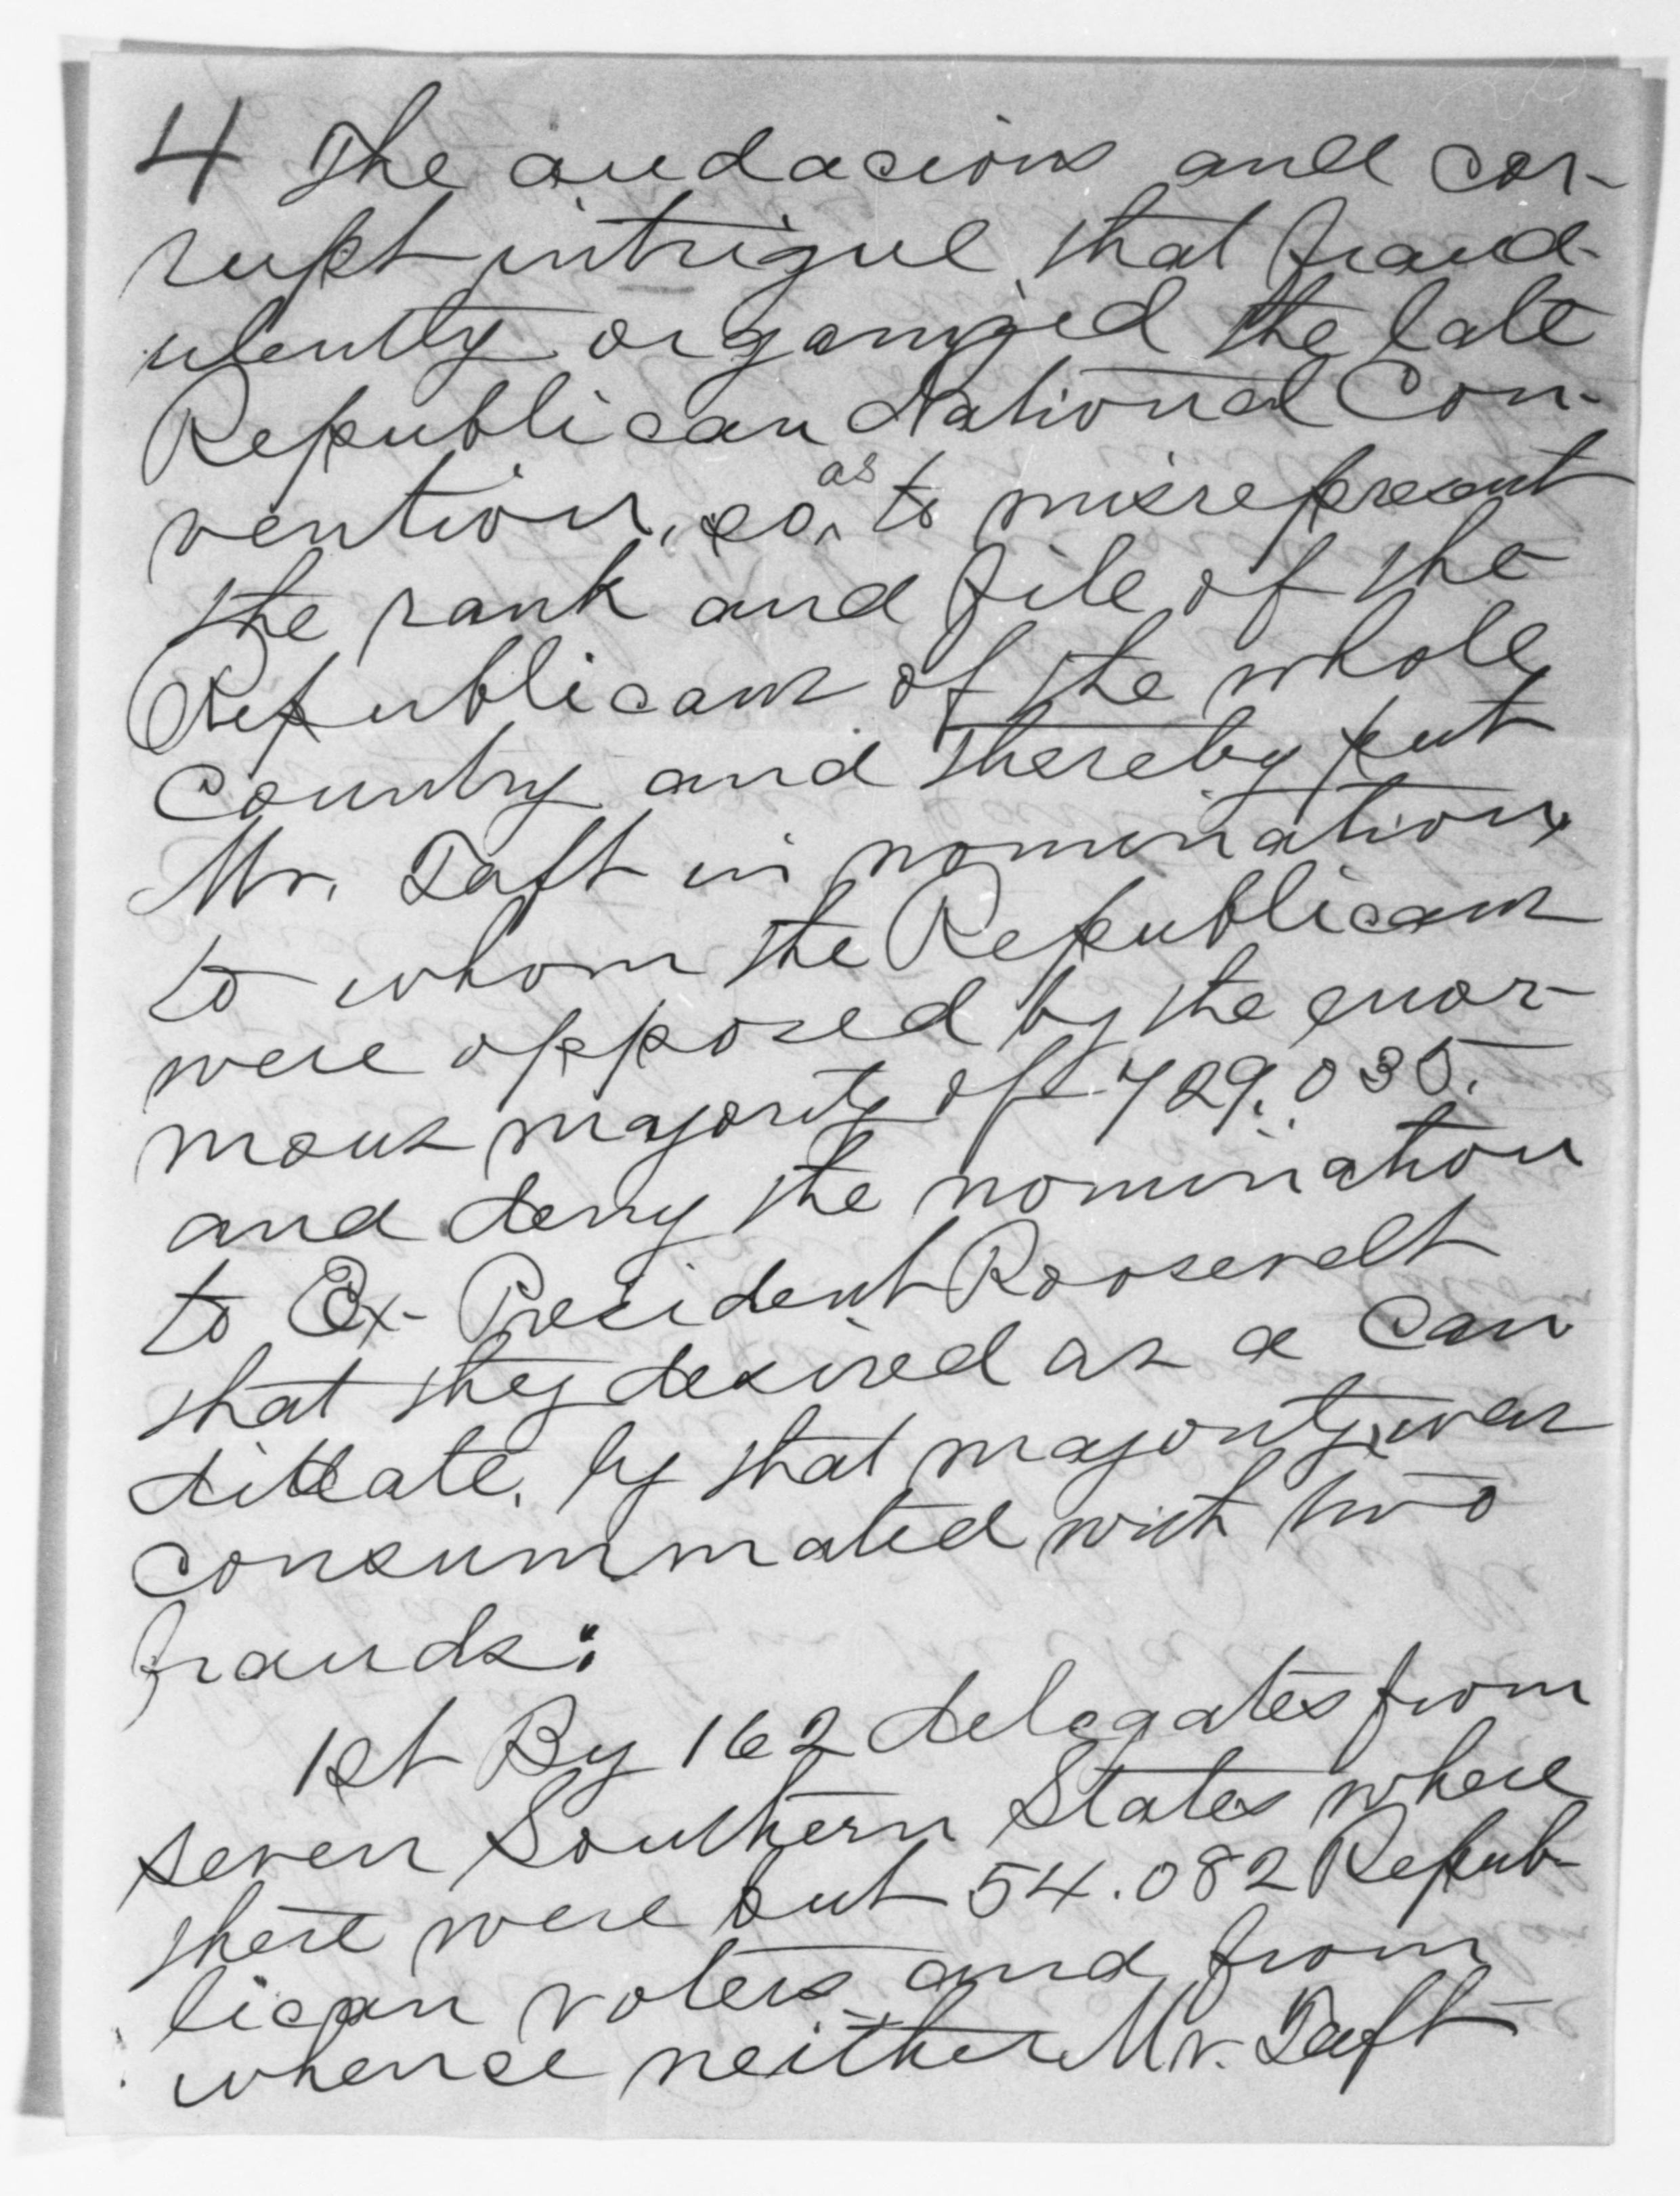 4 The audacious and cor-
rupt intrigue that fraud-
ulently organized the late
Republican National Con-
vention, so as to misrepresent
the rank and file of the
Republicans of the whole
Country and thereby put
Mr. Taft in nomination,
to whom the Republicans
were opposed by the enor-
mous majority of 729.035.
and deny the nomination
to Ex-President Roosevelt
that they desired as a Can
didate, by that majority, was
consummated with two
frauds:
1st By 162 delegates from
seven Southern States where
there were but 54.082 Repub-
lican voters and from
whence neither Mr. Taft